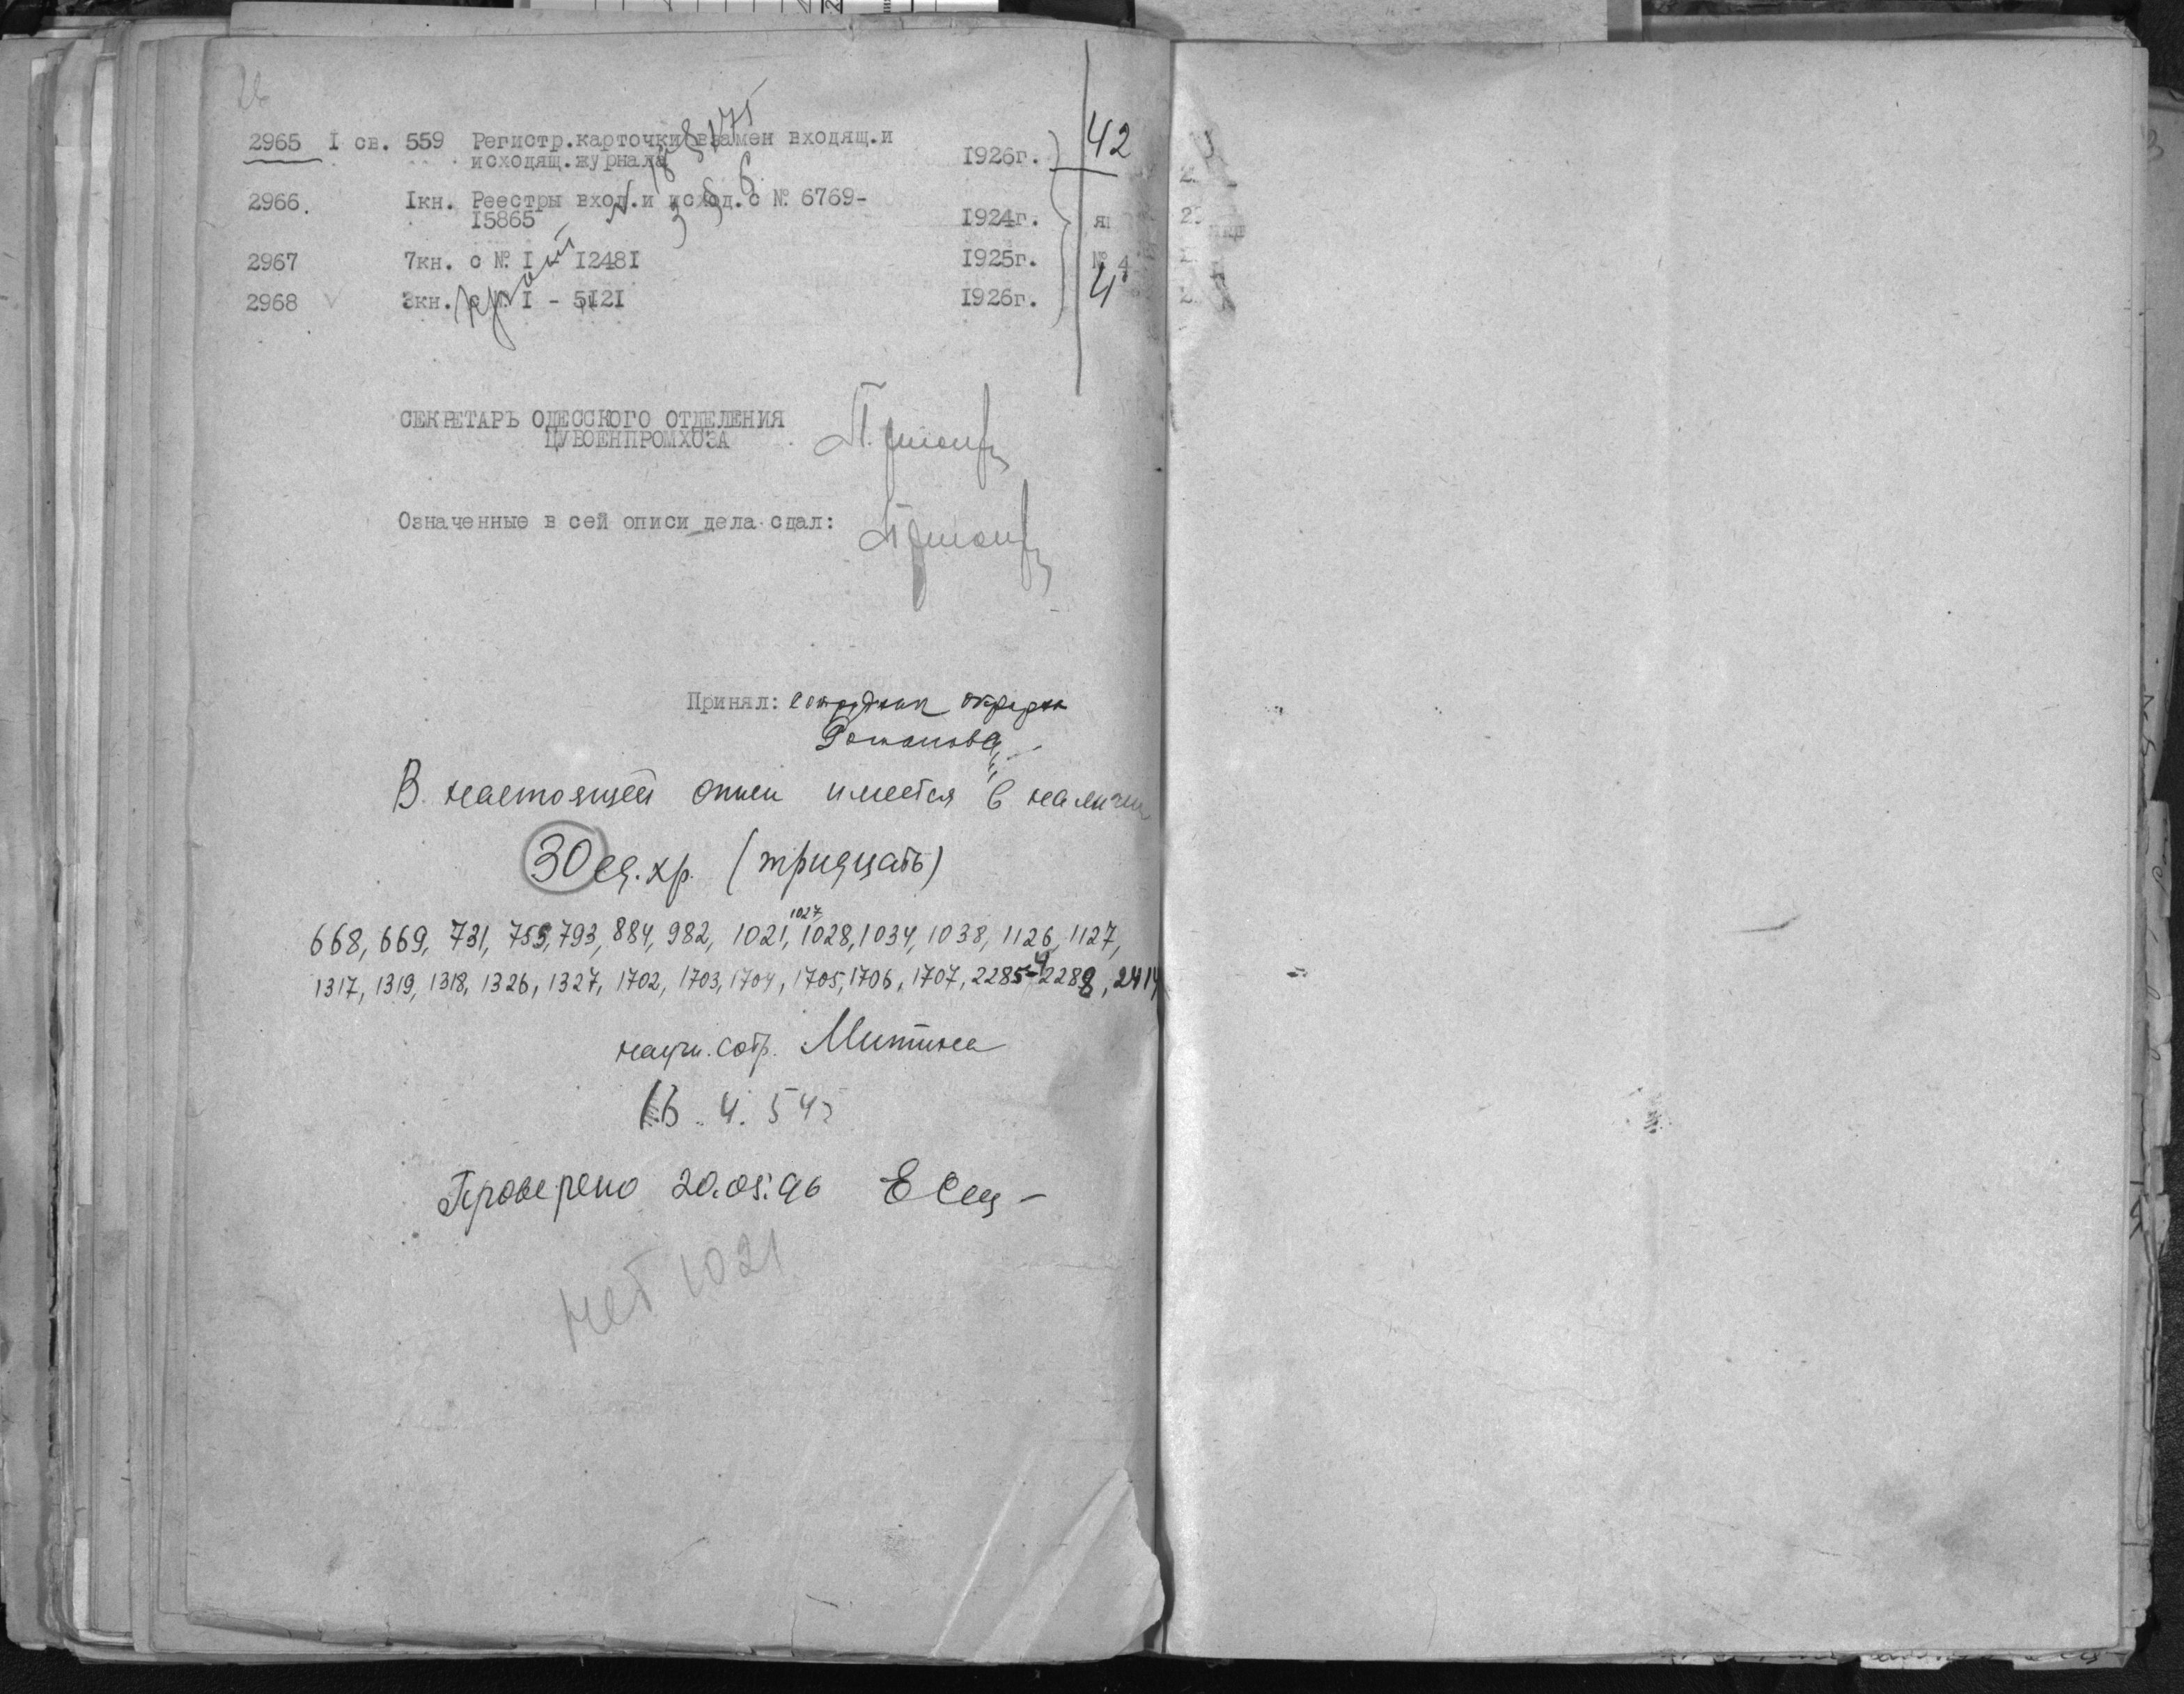 2965 I св. 559 Регистр.карточки взамен входящ.и
исходящ.журнала 1926г. 42
2966. Iкн. Реестры вход.и исход.с № 6769-
I5865 1924г.
2967 7кн. с № I - I248I 1925г. № 4
2968 3кн. с № I - 5I2I 1926г. 4
СЕКРЕТАРЬ ОДЕССКОГО ОТДЕЛЕНИЯ
ЦУВОЕНПРОМХОЗА
Означенные в сей описи дела сдал:
Принял: сотрудник
Романова
В настоящей описи имеется в наличии
30 ед. хр. (тридцать)
1027
668, 669, 731, 755, 793, 884, 982, 1021, 1028, 1034, 1038, 1126, 1127,
1317, 1319, 1318, 1326, 1327, 1702, 1703, 1704, 1705, 1706, 1707, 2285-2288, 2414
научн. сотр. Митина
16.4.54г
Проверено 20.05.96
нет 1021